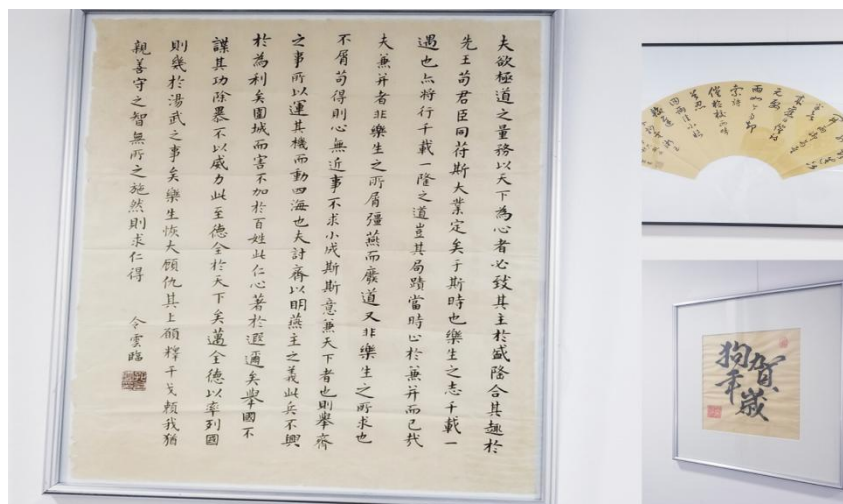 夫欲極道之量務以天下為心者必致其主於盛隆合其趣於
先王苟君臣同符斯大業定矣于斯時也樂生之志千載一
遇也亦將行千載一隆之道豈其局蹟當時止於兼并而已哉
夫兼并者非樂生之所屑彊燕而廢道又非樂生之所求也
不屑苟得則心無近事不求小成斯斯意兼天下者也則舉齊
之事所以運其機而動四海也夫討齊以明燕主之義此兵不興
於為利矣圍城而害不加於百姓此仁心著於遐邇矣舉國不
謀其功除暴不以威力此至德全於天下矣邁全德以率列國
則幾於湯武之事矣樂生恢大願仇其上願釋干戈賴我猶
親善守之智無所之施然則求仁得
令雲臨
賀歲
狗年